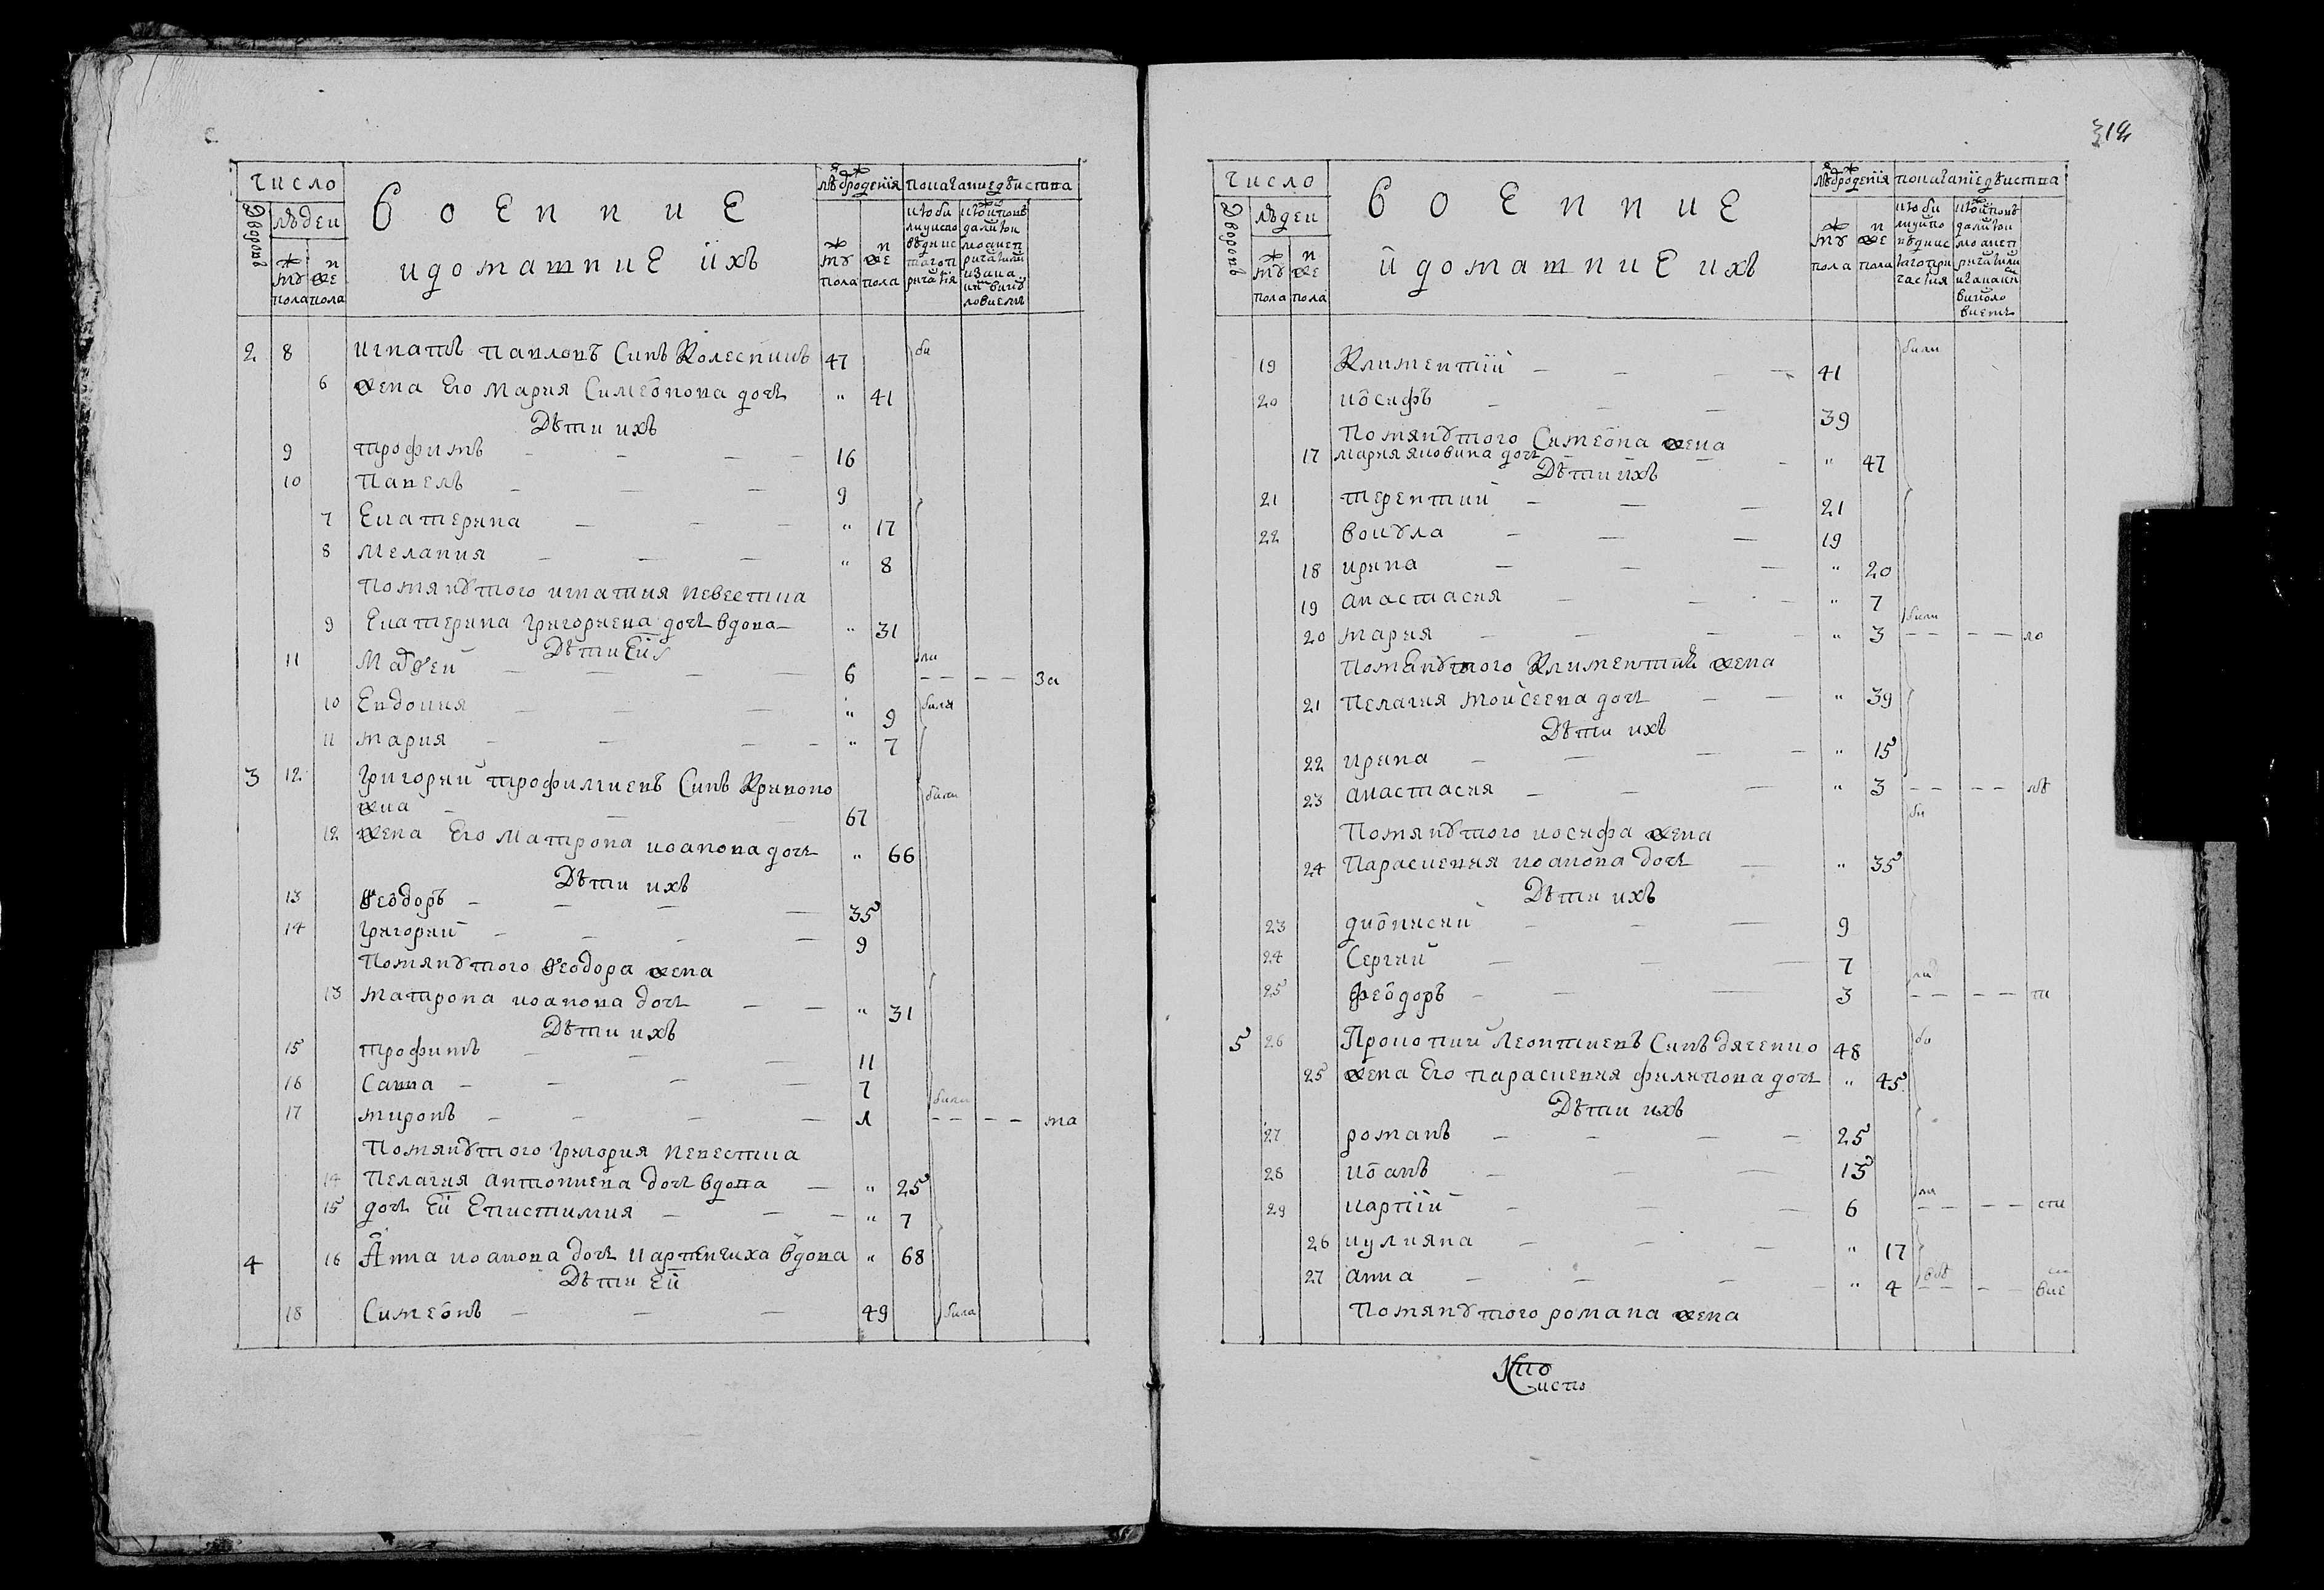 Число
Дворовъ
людей
муж пола
жен пола
Военние
и домашние ихъ
лѣт рождения
муж пола
жен пола
показание действа
2 8 Игнатъ Павловъ Синъ Колесникъ 47
6 жена Его Мария Симеонова дочь " 41
Дѣти ихъ
9 Трофимъ 16
10 Павелъ 9
7 Екатерина " 17
8 Мелания " 8
Помянутого игнатия невестка
9 Екатерина григориева дочь вдова " 31
Дѣти Ей
11 Матѳей 6 за
10 Евдокия " 9
11 Мария " 7
3 12 Григорий трофимиевъ Синъ Кривоно
жка 67
12 жена Его Матрона иоанова дочь " 66
Дѣти ихъ
13 Ѳеодоръ 35
14 Григорий 9
Помянутого Ѳеодора жена
13 Матрона иоанова дочь " 31
Дѣти ихъ
15 Трофимъ 11
16 Савва 7
17 миронъ 1 ма
Помянутого Григория невестка
14 Пелагия Антониева дочь вдова " 25
15 дочь Ей Епистимия " 7
4 16 Анна иоанова дочь карпенчиха вдова " 68
Дѣти Ей
18 Симеонъ 49 била
314
Число
Дворовъ
людей
муж пола
жен пола
Военние
и домашние ихъ
лѣт рождения
муж пола
жен пола
показание действа
19 Климентий 41 били
20 иосифъ 39
Помянутого Симеона жена
17 мария яковина дочь " 47
Дѣти ихъ
21 терентий 21
22 вокула 19
18 ирина " 20
19 анастасия " 7
20 мария " 3 били ло
Помянутого Климентия жена
21 Пелагия мойсеева дочь " 39
Дѣти ихъ
22 ирина " 15
23 анастасия " 3 лѣ
Помянутого иосифа жена
24 Параскевия иоанова дочь " 35
Дѣти ихъ
23 дионисий 9
24 Сергий 7
25 Феодоръ 3
5 26 Прокопий Леонтиевъ Синъ дяченко 48
25 жена Его параскевия филипова дочь " 45
Дѣти ихъ
27 романъ 25
28 иоанъ 15
29 карпий 6
26 иулияна " 17
27 анна " 4
Помянутого романа жена